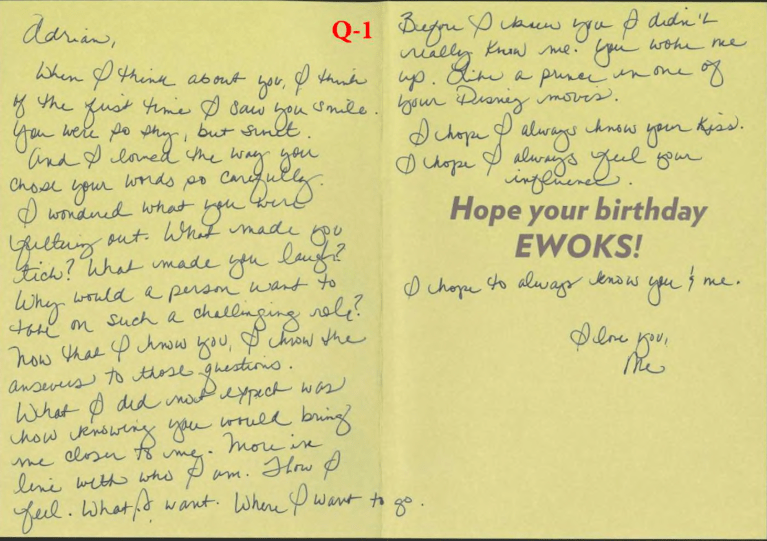 Q-1
Adrian,
When I think about you, I think
of the first time I saw you smile.
You were so shy, but sweet.
And I loved the way you
chose your words so carefully.
I wondered what you were
filtering out. What made you
tick? What made you laugh?
Why would a person want to
take on such a challenging role?
Now that I know you, I know the
answers to those questions.
What I did not expect was
how knowing you would bring
me closer to me. More in
line with who I am. How I
feel. What I want. Where I want to go.
Before I knew you I didn't
really know me. You woke me
up. Like a prince in one of
your Disney movies.
I hope I always know your kiss.
I hope I always feel your
influence.
Hope your birthday
EWOKS!
I hope to always know you & me.
I love you,
Me